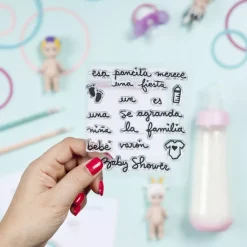 esa pancita merece
una fiesta
un es
una Se agranda
niña la familia
bebé varón
Baby Shower